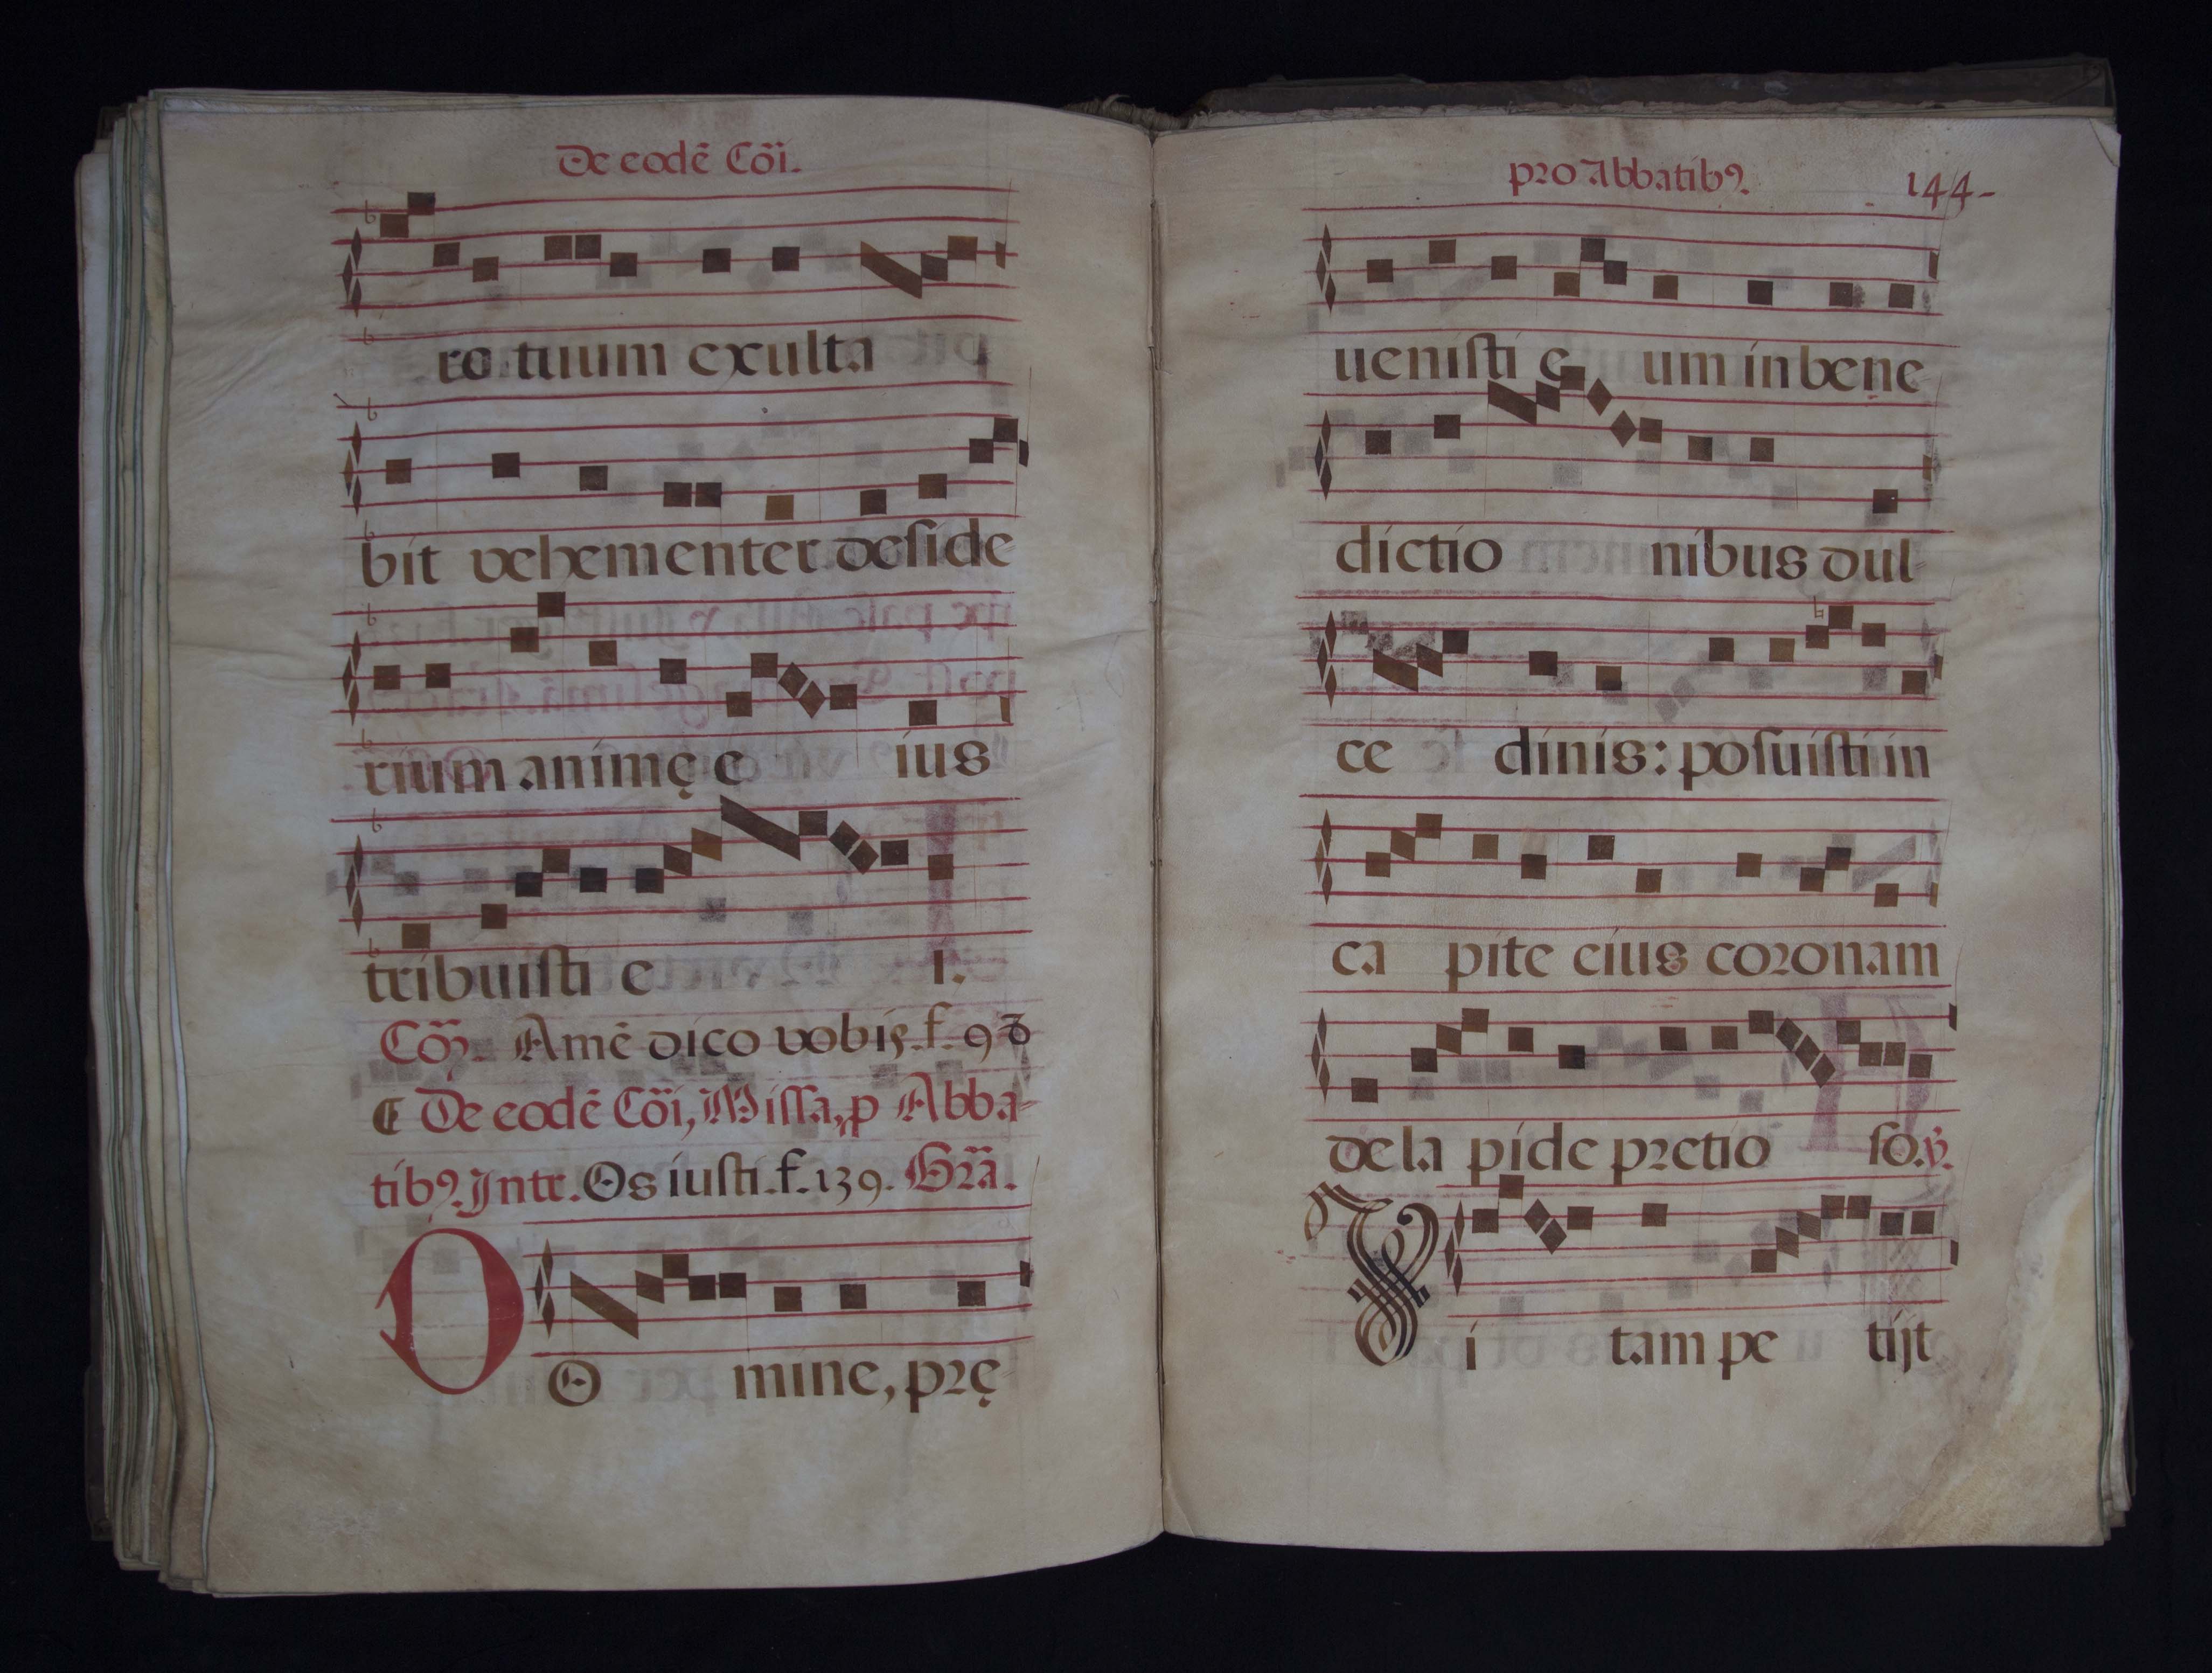 De eodẽ Cõi.
ro tuum exulta
bit vehementer deside
rium animę e ius
tribuisti e i.
Amẽ dico vobis. f. 98
De eodẽ Cõi, Missa, p Abba-
tibꝰ. Intr. Os iusti. f. 139. Gra.
D O mine, prę
pro Abbatibꝰ. 144-
uenisti e um in bene
dictio nibus dul-
ce dinis: posuisti in
ca pite eius coronam
de la pide pretio so. ℣.
V i tam pe tijt